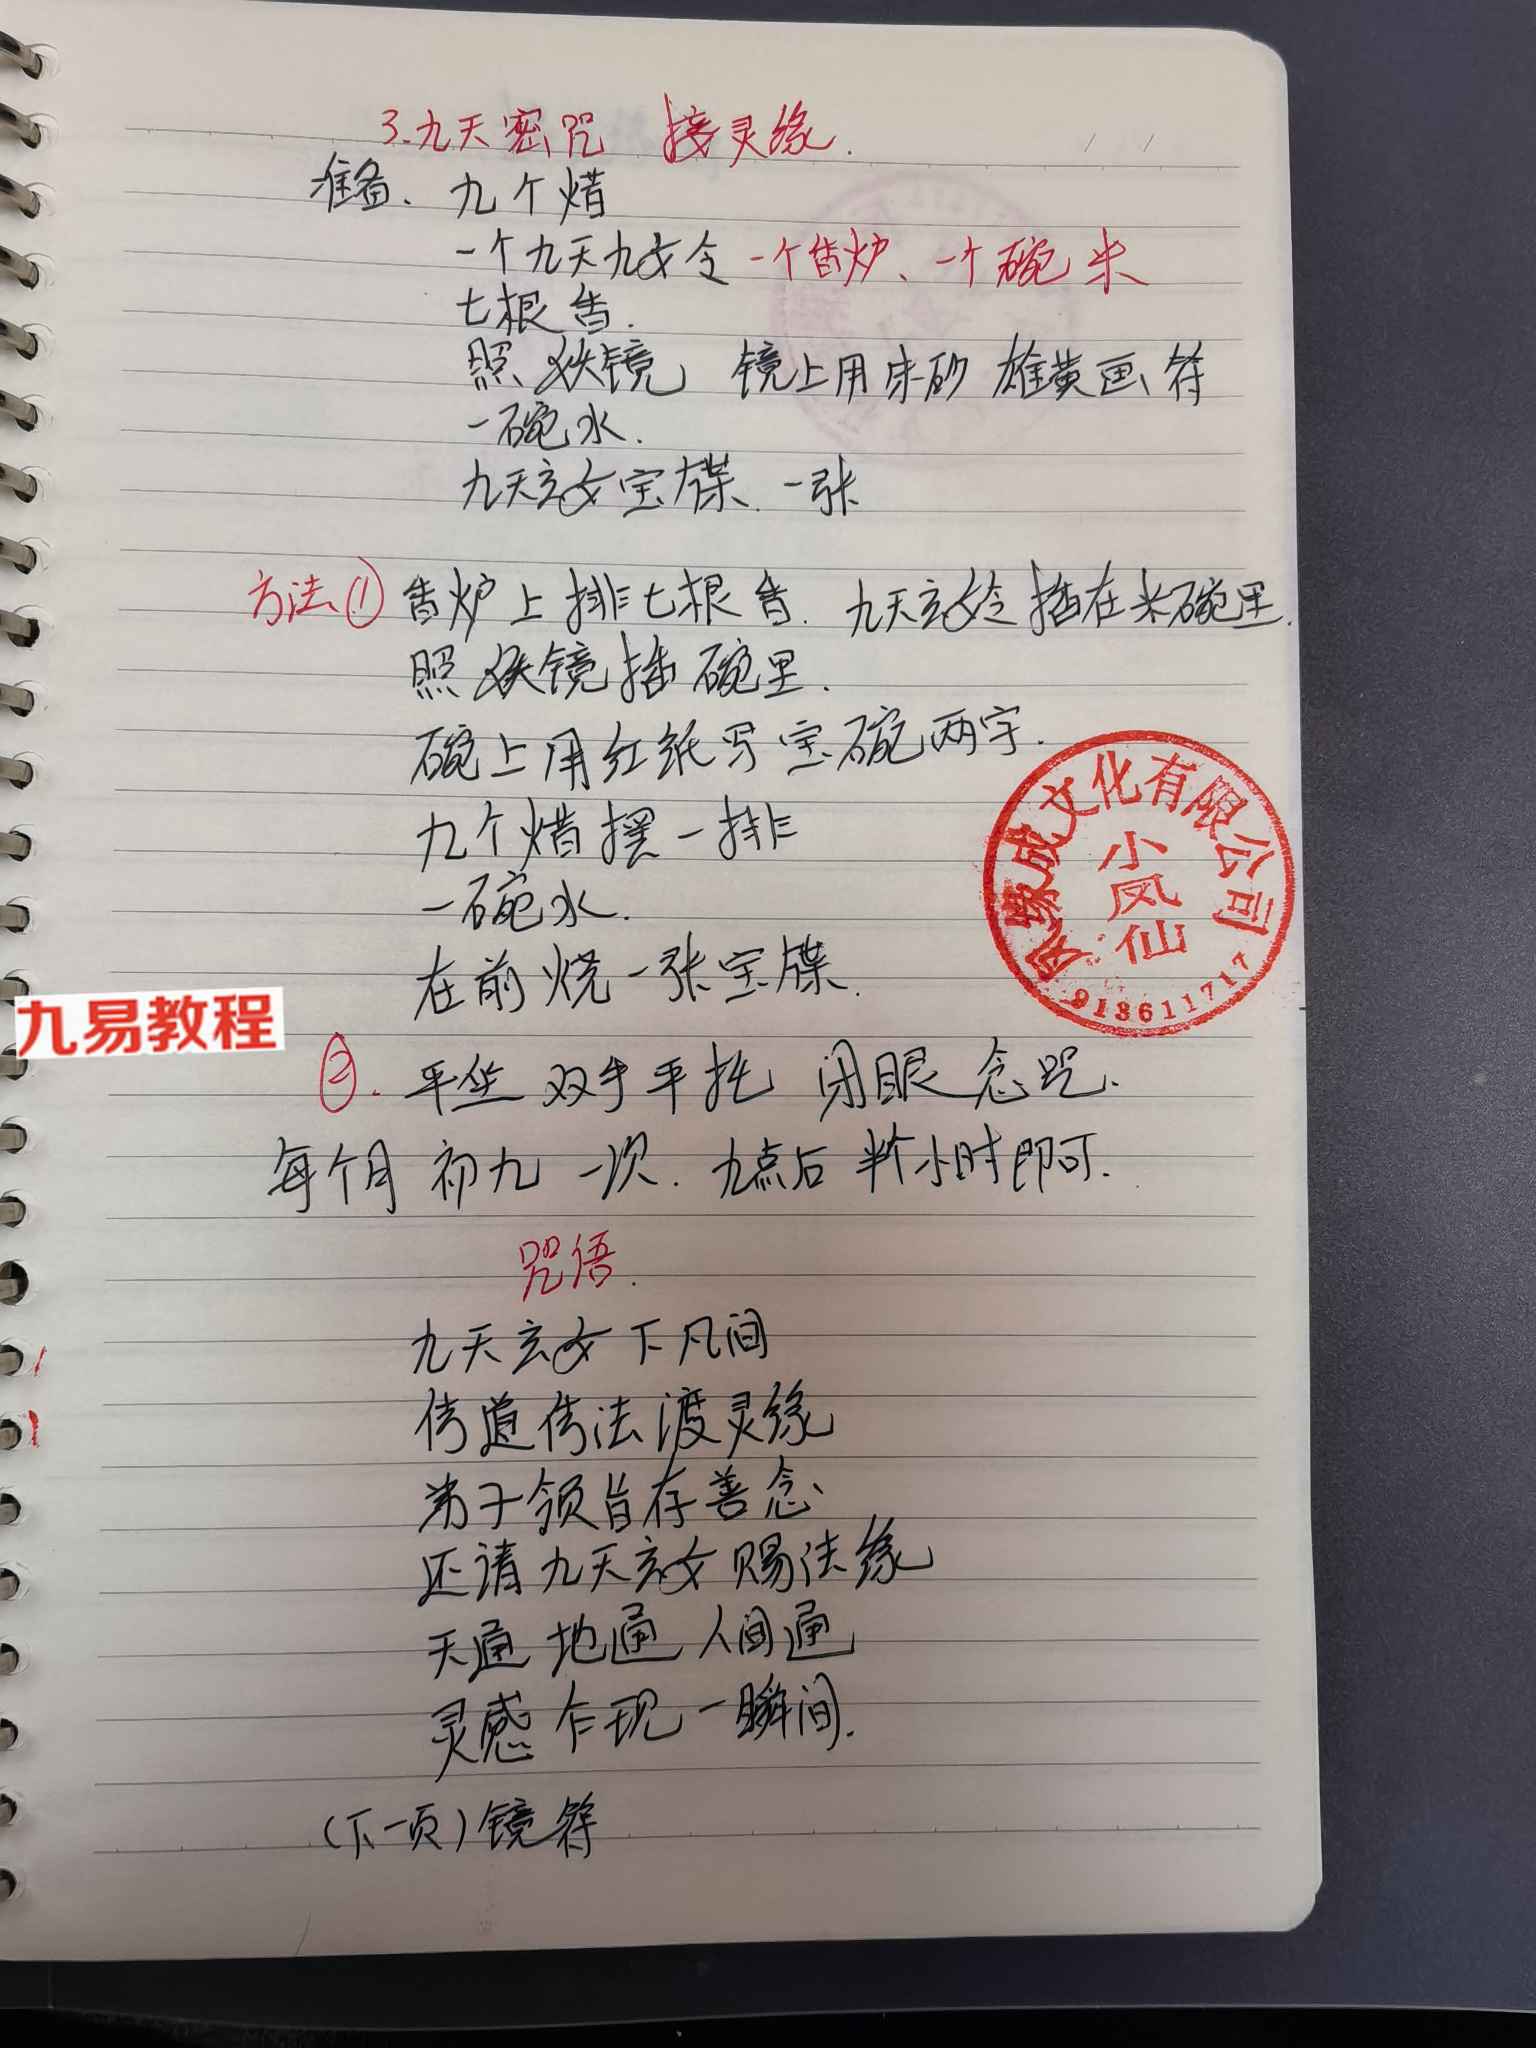 3.九天密咒 接灵缘.
准备、九个蜡
一个九天九女令 一个香炉、一个碗米
七根香.
照妖镜 镜上用朱砂 雄黄画符
一碗水.
九天玄女宝牒.一张
方法① 香炉上排七根香.九天玄女令插在米碗里.
照妖镜插碗里.
碗上用红纸写宝碗两字.
九个蜡摆一排
一碗水.
在前烧一张宝牒.
缘成文化有限公司
小凤仙
913611717
九易教程
②.平坐 双手平托 闭眼念咒.
每个月初九一次.九点后半个小时即可.
咒语.
九天玄女下凡间
传道传法渡灵缘
弟子领旨存善念
还请九天玄女赐法缘
天通地通人间通
灵感乍现一瞬间.
(下一页)镜符